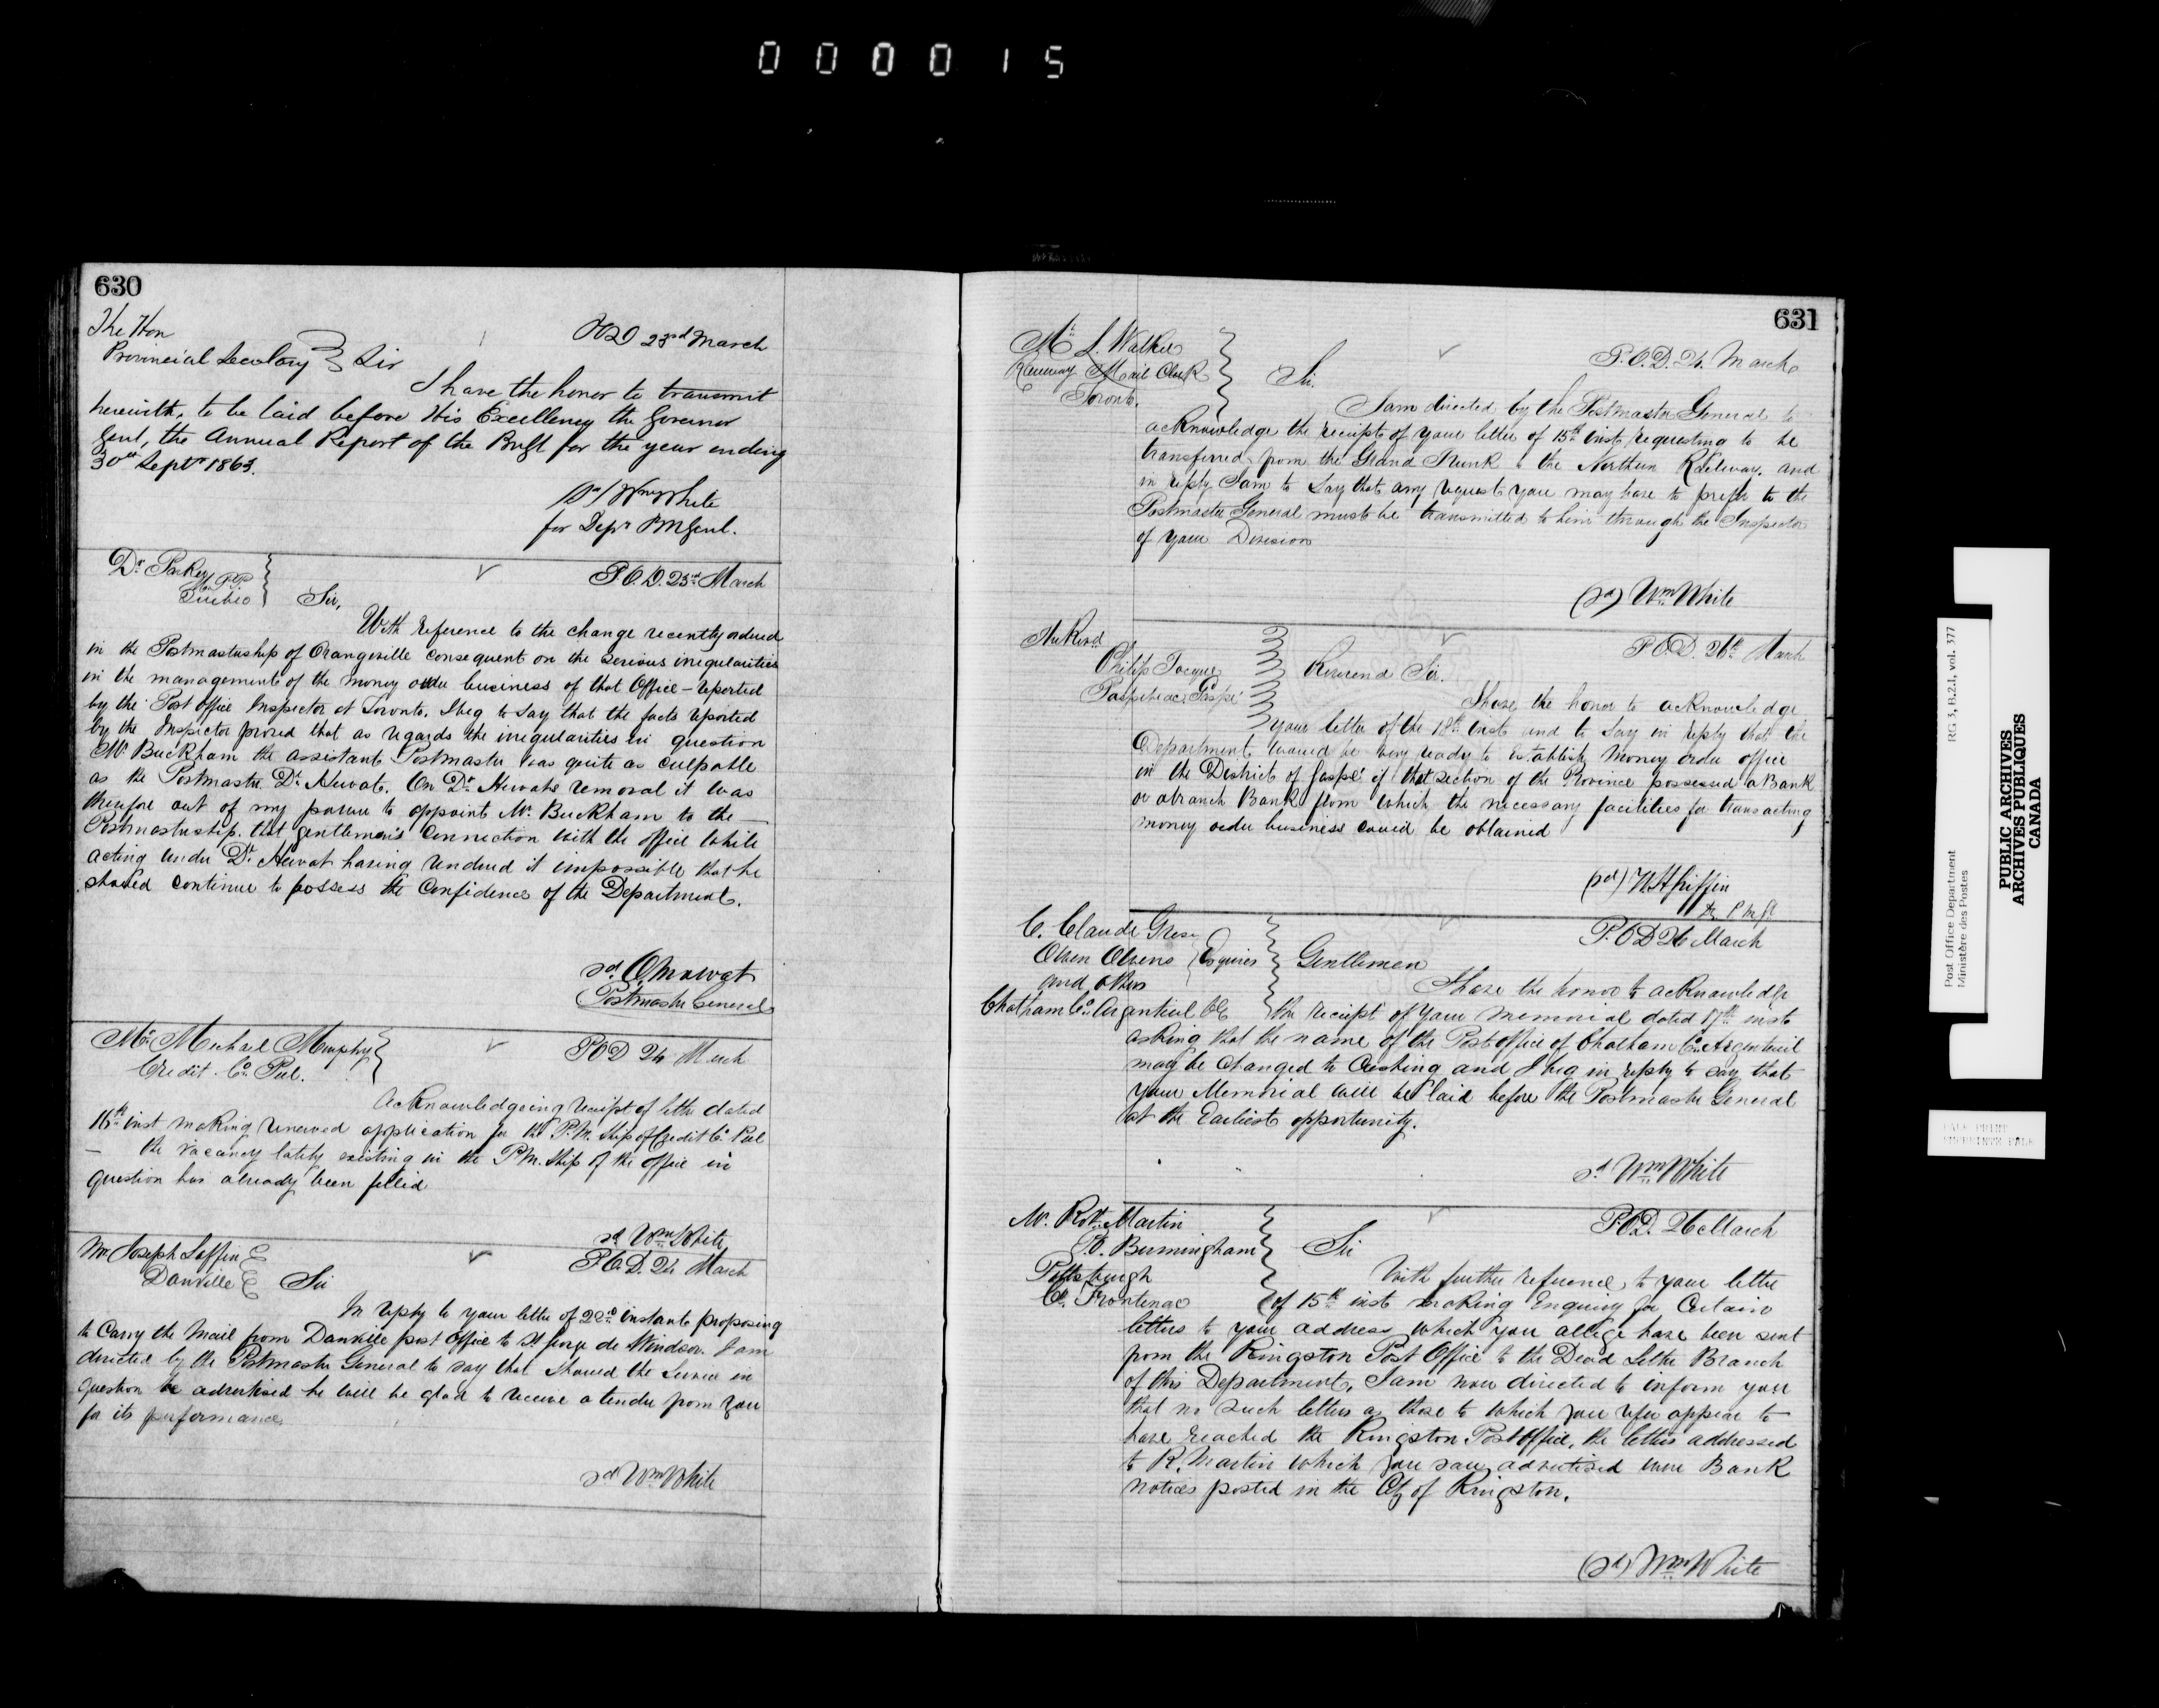 000015
630
The Hon
Provincial Secretary Sir
POD 23rd March
I have the honor to transmit
herewith, to be laid before His Excellency the Governor
Genl, the Annual Report of the for the year ending
30th Septr 1863.
(sd) Wm White
for Depy PMGenl.
Dr Parker M.P.P.
Quebec
P.O.D. 23rd March
Sir,
With reference to the change recently ordered
in the Postmastership of Orangeville consequent on the serious irregularities
in the management of the money order business of that Office – reported
by the Post Office Inspector at Toronto, I beg to say that the facts reported
by the Inspector proved that as regards the irregularities in question
Mr Buckham the assistant Postmaster was quite as culpable
as the Postmaster Dr Hewat. On Dr Hewats removal it was
therefore out of my power to appoint Mr. Buckham to the —
Postmastership. that gentleman's connection with the office while
acting under Dr Hewat having rendered it impossible that he
should continue to possess the Confidence of the Department.
sd. O Mowat
Postmaster General
Mr. Michael Murphy
Credit. Co. Peel.
POD 24 March
Acknowledgeing receipt of letter dated
16th inst making renewed application for the P.M. Ship of Credit Co. Peel
— the vacancy lately existing in the P.M. Ship of the office in
question has already been filled
sd Wm White
Mr Joseph Laffin
Danville
Sir
P.O.D. 24 March
In reply to your letter of 22nd instant proposing
to Carry the Mail from Danville post Office to St George de Windsor. I am
directed by the Postmaster General to say that should the Service in
question be advertised he will be glad to receive a tender from you
for its performance
sd Wm White
631
Mr. L. Walker
Railway Mail Clerk
Toronto.
P.O.D. 24 March
Sir.
I am directed by the Postmaster General to
acknowledge the receipt of your letter of 15th inst requesting to be
transferred from the Grand Trunk to the Northern Railway, and
in reply I am to say that any request you may have to prefer to the
Postmaster General must be transmitted to him through the Inspector
of your Division
(sd) Wm White
The Revd
Philip Tocque
Paspebiac, Gaspé
P.O.D. 26th March
Reverend Sir.
I have the honor to acknowledge
your letter of the 18th inst and to say in reply that the
Department would be very ready to establish Money order office
in the District of Gaspé if that section of the Province possessed a Bank
or a branch Bank from which the necessary facilities for transacting
money order business could be obtained
(sd) W. H. Griffin
D. P. M. Gl
C. Claude Grece
Owen Owens Esquires
and others
Chatham Co. Argenteuil CE
P.O.D 26 March
Gentlemen
I have the honor to acknowledge
the receipt of your memorial dated 17th inst
asking that the name of the Post office of Chatham Co. Argenteuil
may be changed to Cushing and I beg in reply to say that
your Memorial will be laid before the Postmaster General
at the Earliest opportunity.
sd Wm White
Mr. Robt. Martin
P.O. Birmingham
Pittsburgh
Co. Frontenac
P.O.D. 26 March
Sir
With further reference to your letter
of 15th inst making Enquiry for Certain
letters to your address which you allege have been sent
from the Kingston Post Office to the Dead Letter Branch
of this Department, I am now directed to inform you
that no such letters as those to which you refer appear to
have reached the Kingston Post Office, the letters addressed
to R. Martin which you saw advertised were Bank
notices posted in the City of Kingston.
(sd) Wm White
Post Office Department
Ministère des Postes
RG 3, B.2.1, vol. 377
PUBLIC ARCHIVES
ARCHIVES PUBLIQUES
CANADA